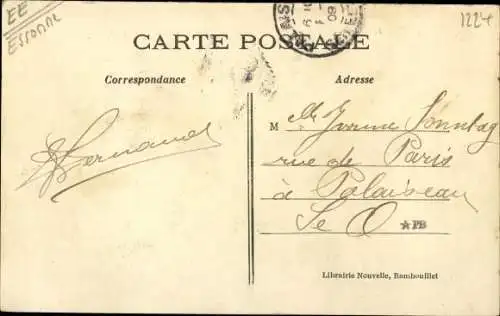 EE
ESSONNE
1224
CARTE POSTALE
Correspondance
Adresse
Fernand
M elle Yvonne Sonntag
rue de Paris
à Palaiseau
Se O
★PB
Librairie Nouvelle, Rambouillet